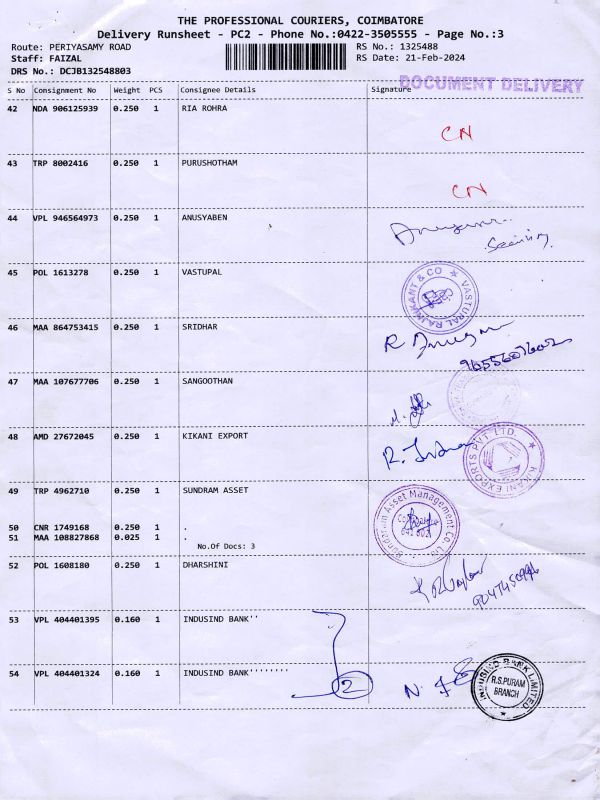 THE PROFESSIONAL COURIERS, COIMBATORE
Delivery Runsheet - PC2 - Phone No.:0422-3505555 - Page No.:3
Route: PERIYASAMY ROAD RS No.: 1325488
Staff: FAIZAL RS Date: 21-Feb-2024
DRS No.: DCJB132548803
DOCUMENT DELIVERY
S No Consignment No Weight PCS Consignee Details Signature
42 NDA 906125939 0.250 1 RIA ROHRA
CN
43 TRP 8002416 0.250 1 PURUSHOTHAM
CN
44 VPL 946564973 0.250 1 ANUSYABEN
45 POL 1613278 0.250 1 VASTUPAL
VASTURAL RAJNIKANT & CO
46 MAA 864753415 0.250 1 SRIDHAR
47 MAA 107677706 0.250 1 SANGOOTHAN
48 AMD 27672045 0.250 1 KIKANI EXPORT
KIKANI EXPORTS PVT LTD.
49 TRP 4962710 0.250 1 SUNDRAM ASSET
Sundaram Asset Management Co Ltd
50 CNR 1749168 0.250 1 .
51 MAA 108827868 0.025 1 .
No.Of Docs: 3
52 POL 1608180 0.250 1 DHARSHINI
53 VPL 404401395 0.160 1 INDUSIND BANK''
54 VPL 404401324 0.160 1 INDUSIND BANK''''''''
2
INDUSIND BANK LIMITED
R.S.PURAM
BRANCH